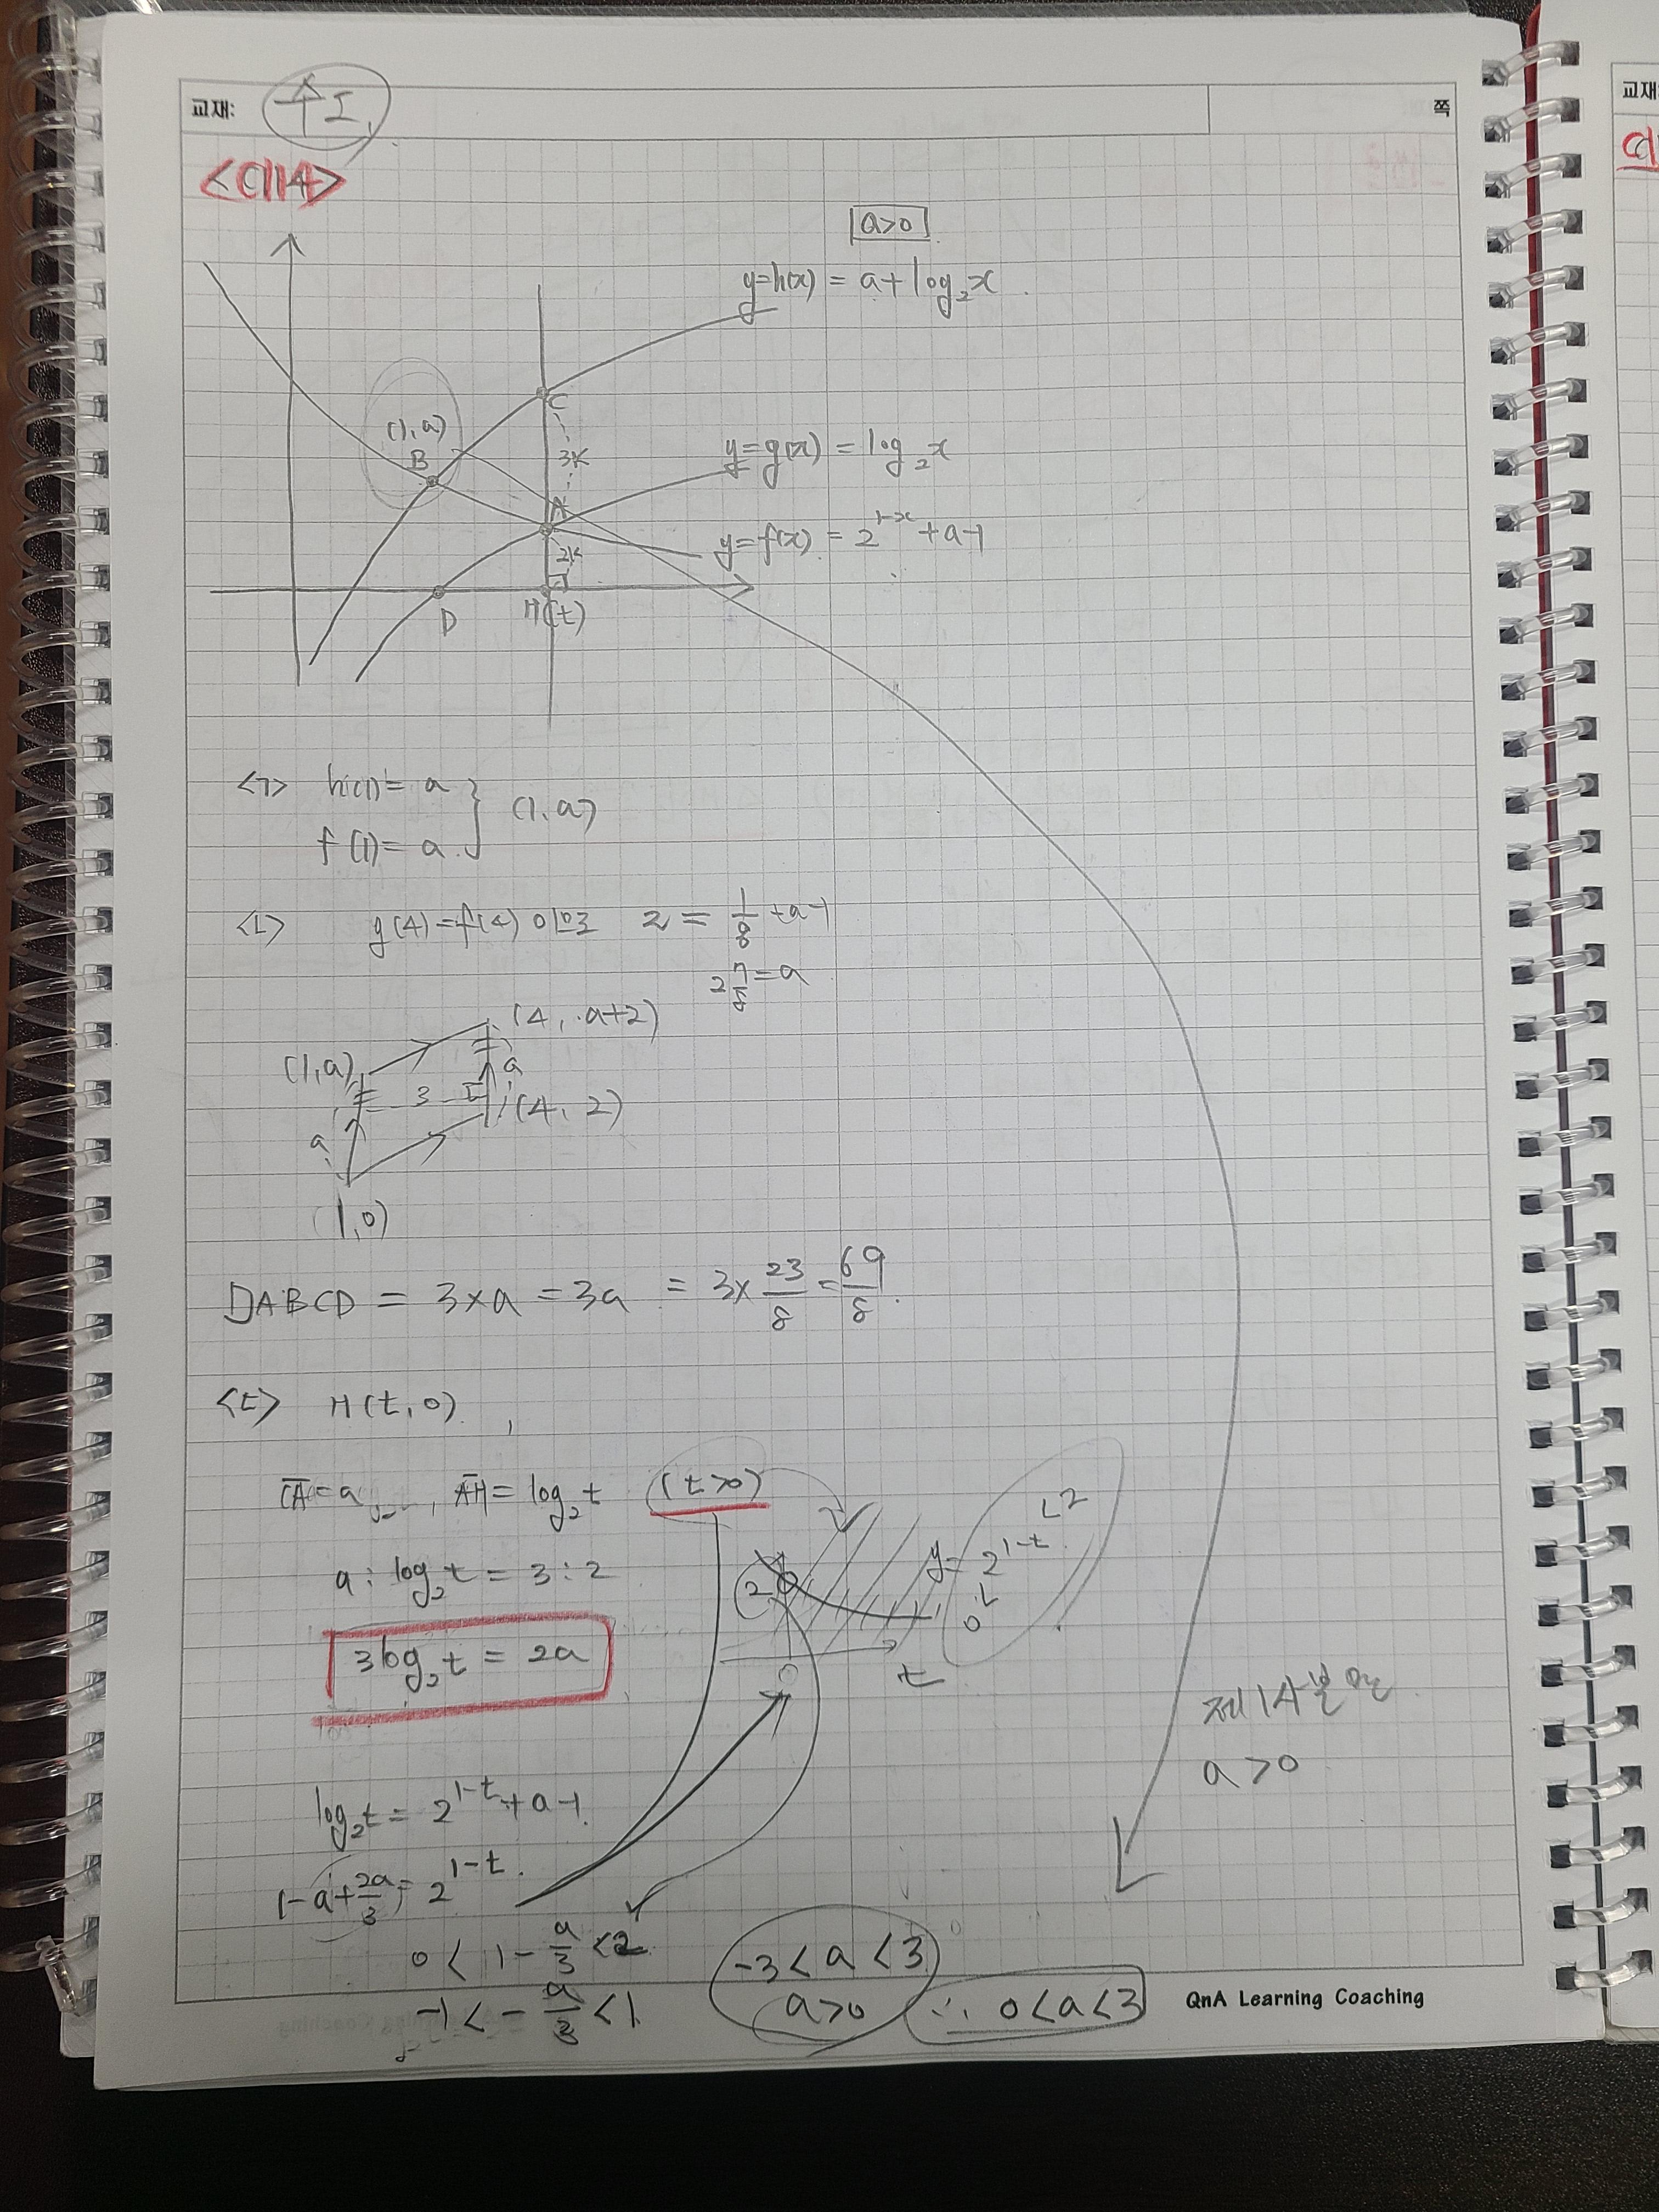 교재: 수I.
쪽
<예14>
a>0
y=h(x) = a+log₂x
(1, a)
B
C
3k
y=g(x) = log₂x
A
y=f(x) = 2^(1-x) +a-1
2k
D
H(t)
<ㄱ> h(1) = a
f(1) = a
(1, a)
<ㄴ> g(4)=f(4) 이므로 2 = 1/8 +a-1
2 7/8 = a
(4, a+2)
(1, a)
a
3
(4, 2)
a
(1, 0)
□ABCD = 3×a = 3a = 3× 23/8 = 69/8.
<ㄷ> H(t, 0)
CA = a, AH = log₂t (t>0)
a : log₂t = 3 : 2
y= 2^(1-t)
2
0
t
3log₂t = 2a
제1사분면
a >0
log₂t = 2^(1-t) +a-1
1-a+ 2a/3 = 2^(1-t)
0 < 1 - a/3 <2
-3 < a < 3
-1 < - a/3 < 1
a>0
∴ 0<a<3
QnA Learning Coaching
교재: